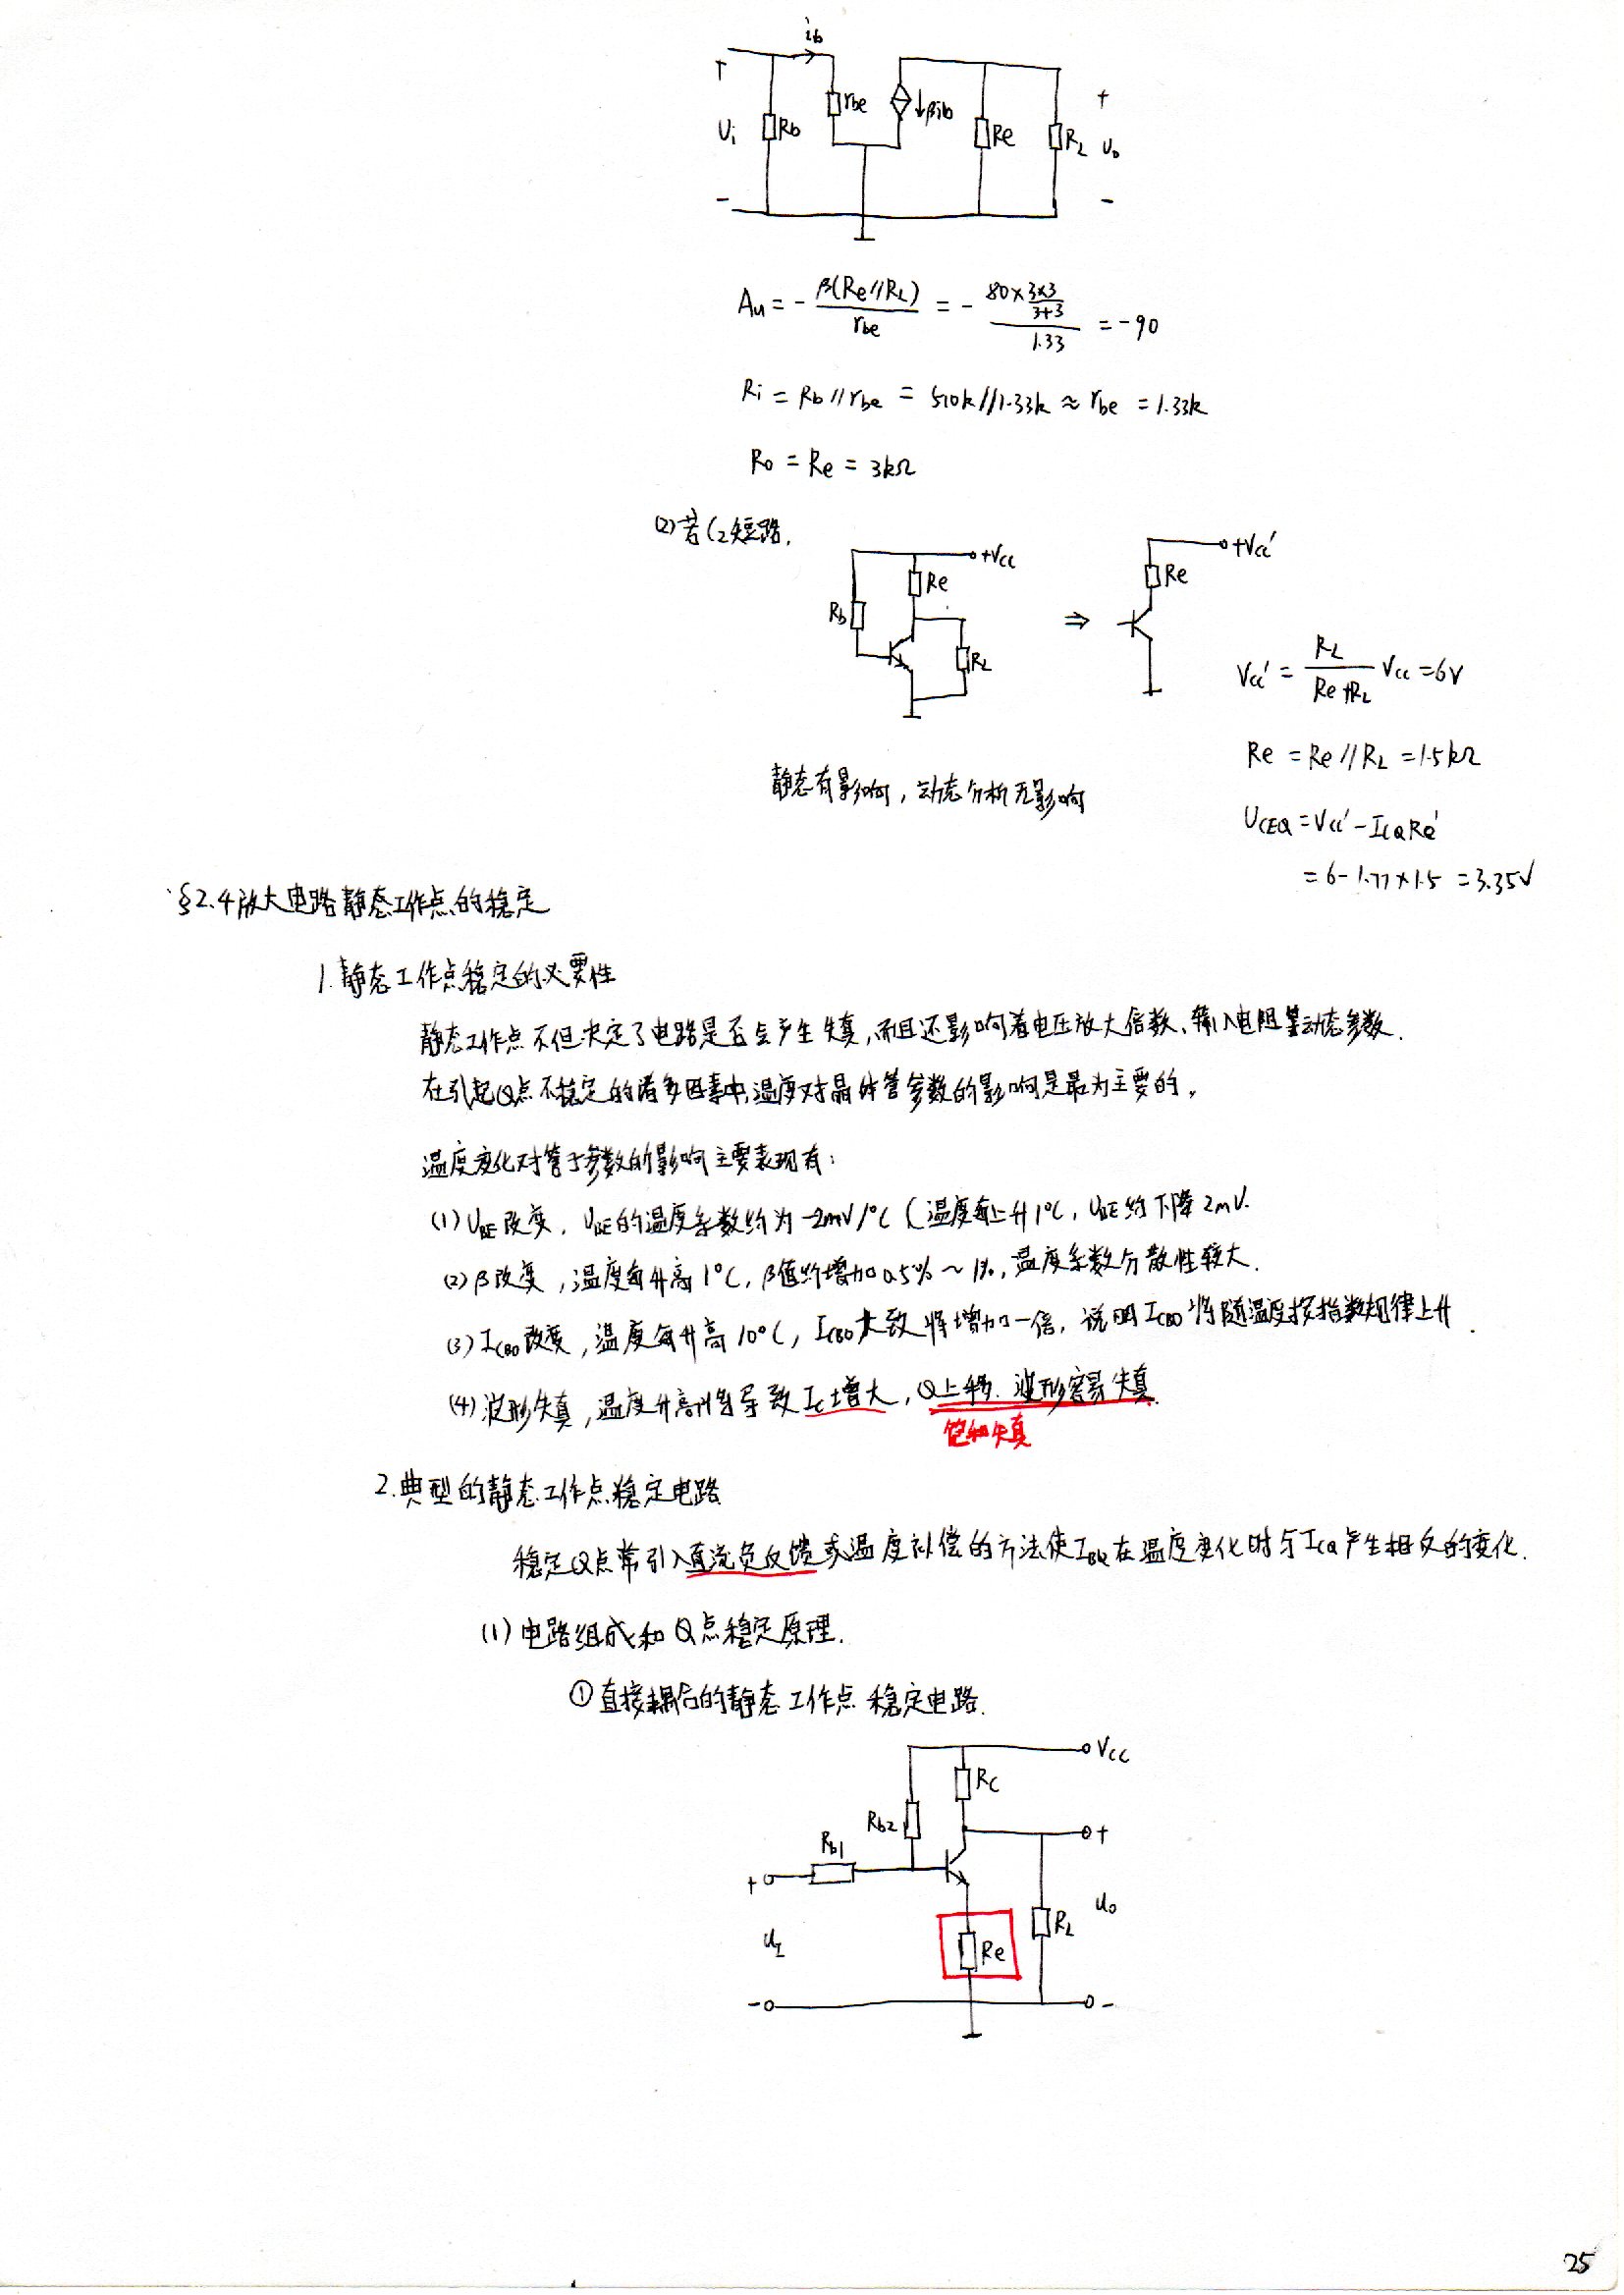 ib
+
Ui
-
Rb
rbe
↓βib
Re
RL
+
Uo
-
Au = - β(Re//RL) / rbe = - (80×(3×3)/(3+3)) / 1.33 = -90
Ri = Rb//rbe = 510k//1.33k ≈ rbe = 1.33k
Ro = Re = 3kΩ
(2)若C2短路.
+Vcc
Re
Rb
RL
⇒
+Vcc'
Re
Vcc' = RL / (Re+RL) Vcc = 6V
Re = Re//RL = 1.5kΩ
静态有影响, 动态分析无影响
UCEQ = Vcc' - ICQRe'
= 6-1.77×1.5 = 3.35V
§2.4放大电路静态工作点的稳定
1.静态工作点稳定的必要性
静态工作点不但决定了电路是否会产生失真,而且还影响着电压放大倍数、输入电阻等动态参数.
在引起Q点不稳定的诸多因素中,温度对晶体管参数的影响是最为主要的。
温度变化对管子参数的影响主要表现有:
(1)UBE改变, UBE的温度系数约为-2mV/°C (温度每上升1°C, UBE约下降2mV.
(2)β改变, 温度每升高1°C, β值约增加0.5%~1%, 温度系数分散性较大.
(3)ICBO改变, 温度每升高10°C, ICBO大致将增加一倍, 说明ICBO将随温度按指数规律上升.
(4)波形失真, 温度升高将导致Ic增大, Q上移. 波形容易失真.
饱和失真
2.典型的静态工作点稳定电路
稳定Q点常引入直流负反馈或温度补偿的方法使IBQ在温度变化时与ICQ产生相反的变化.
(1)电路组成和Q点稳定原理.
①直接耦合的静态工作点稳定电路.
Vcc
Rc
Rb2
Rb1
+
+
uI
Re
RL
uo
-
-
25